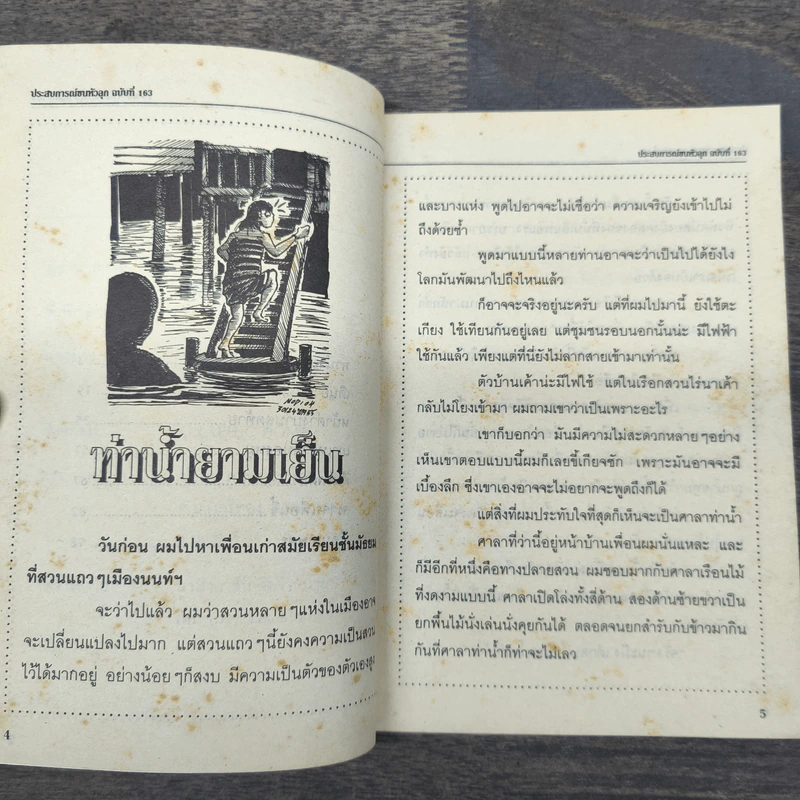 ประสบการณ์ขนหัวลุก ฉบับที่ 163
ท่าน้ำยามเย็น
วันก่อน ผมไปหาเพื่อนเก่าสมัยเรียนชั้นมัธยม
ที่สวนแถวๆเมืองนนท์ฯ
จะว่าไปแล้ว ผมว่าสวนหลายๆแห่งในเมืองอาจ
จะเปลี่ยนแปลงไปมาก แต่สวนแถวๆนี้ยังคงความเป็นสวน
ไว้ได้มากอยู่ อย่างน้อยๆก็สงบ มีความเป็นตัวของตัวเองสูง
4
ประสบการณ์ขนหัวลุก ฉบับที่ 163
และบางแห่ง พูดไปอาจจะไม่เชื่อว่า ความเจริญยังเข้าไปไม่
ถึงด้วยซ้ำ
พูดมาแบบนี้หลายท่านอาจจะว่าเป็นไปได้ยังไง
โลกมันพัฒนาไปถึงไหนแล้ว
ก็อาจจะจริงอยู่นะครับ แต่ที่ผมไปมานี้ ยังใช้ตะ
เกียง ใช้เทียนกันอยู่เลย แต่ชุมชนรอบนอกนั้นน่ะ มีไฟฟ้า
ใช้กันแล้ว เพียงแต่ที่นี่ยังไม่ลากสายเข้ามาเท่านั้น
ตัวบ้านเค้าน่ะมีไฟใช้ แต่ในเรือกสวนไร่นาเค้า
กลับไม่โยงเข้ามา ผมถามเขาว่าเป็นเพราะอะไร
เขาก็บอกว่า มันมีความไม่สะดวกหลายๆอย่าง
เห็นเขาตอบแบบนี้ผมก็เลยขี้เกียจซัก เพราะมันอาจจะมี
เบื้องลึก ซึ่งเขาเองอาจจะไม่อยากจะพูดถึงก็ได้
แต่สิ่งที่ผมประทับใจที่สุดก็เห็นจะเป็นศาลาท่าน้ำ
ศาลาที่ว่านี้อยู่หน้าบ้านเพื่อนผมนั่นแหละ และ
ก็มีอีกที่หนึ่งคือทางปลายสวน ผมชอบมากกับศาลาเรือนไม้
ที่งดงามแบบนี้ ศาลาเปิดโล่งทั้งสี่ด้าน สองด้านซ้ายขวาเป็น
ยกพื้นไม้นั่งเล่นนั่งคุยกันได้ ตลอดจนยกสำรับกับข้าวมากิน
กันที่ศาลาท่าน้ำก็ท่าจะไม่เลว
5